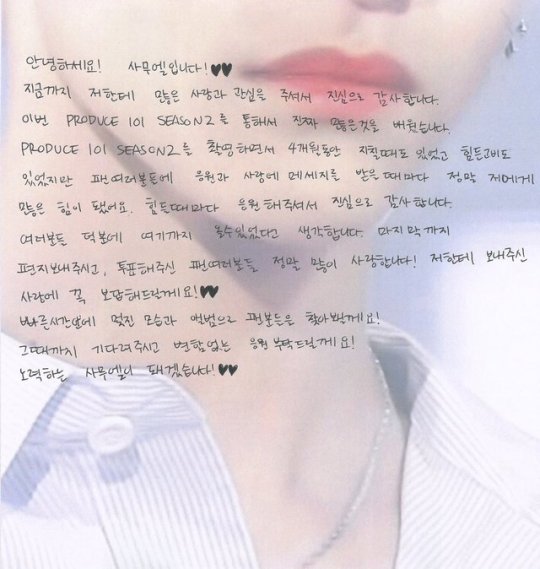 안녕하세요! 사무엘입니다!♥♥
지금까지 저한테 많은 사랑과 관심을 주셔서 진심으로 감사합니다.
이번 PRODUCE 101 SEASON2를 통해서 진짜 많은것을 배웠습니다.
PRODUCE 101 SEASON2를 촬영하면서 4개월동안 지칠때도 있었고 힘든고비도
있었지만 팬여러분들에 응원과 사랑에 메세지를 받은때마다 정말 제에게
많은 힘이 됐어요. 힘든때마다 응원해주셔서 진심으로 감사합니다.
여러분들 덕분에 여기까지 올수있었다고 생각합니다. 마지막까지
편지보내주시고, 투표해주신 팬여러분들 정말 많이 사랑합니다! 저한테 보내주신
사랑에 꼭 보답해드릴게요!♥
빠른시간안에 멋진 모습과 앨범으로 팬분들은 찾아뵐게요!
그때까지 기다려주시고 변함없는 응원 부탁드릴게요!
노력하는 사무엘이 돼겠습니다!♥♥